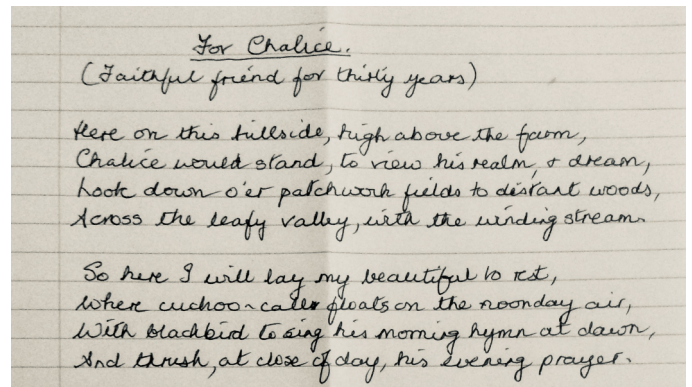 For Chalice.
(Faithful friend for thirty years)
Here on this hillside, high above the farm,
Chalice would stand, to view his realm, & dream,
Look down o'er patchwork fields to distant woods,
Across the leafy valley, with the winding stream.
So here I will lay my beautiful to rest,
Where cuckoo-calls floats on the noonday air,
With blackbird to sing his morning hymn at dawn,
And thrush, at close of day, his evening prayer.